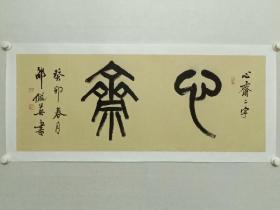 心齋二字
心齋
癸卯春月
書